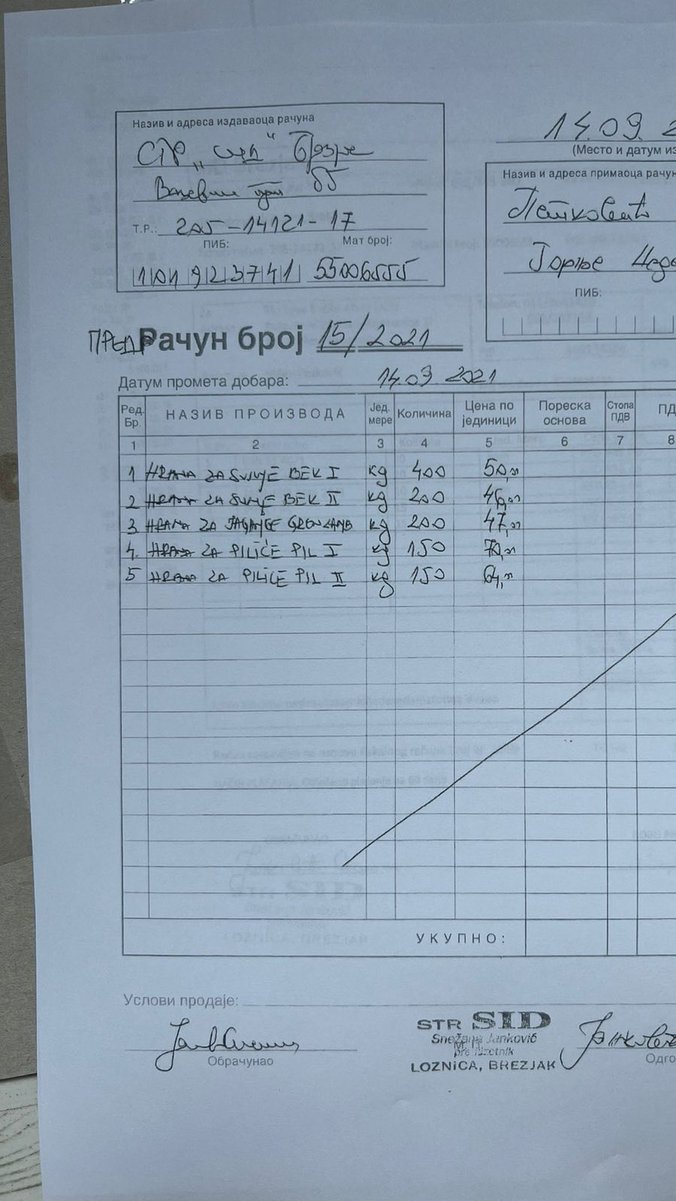 Назив и адреса издаваоца рачуна
СТР „СИД"
55
Т.Р.: 205-14121-17
ПИБ: Мат број:
101923741 55006555
14.09. 2
(Место и датум из
Назив и адреса примаоца рачун
Петковић
Горње
ПИБ:
ПРЕДРачун број 15/2021
Датум промета добара: 14.09 2021
Ред. Бр. НАЗИВ ПРОИЗВОДА Јед. мере Количина Цена по јединици Пореска основа Стопа ПДВ ПД
1 2 3 4 5 6 7 8
1 HRANA ZA SVINJE BEK I kg 400 50,00
2 HRANA ZA SVINJE BEK II kg 200 46,00
3. HRANA ZA kg 200 47,00
4. HRANA ZA PILIĆE PIL I kg 150 70,00
5 HRANA ZA PILIĆE PIL II kg 150 64,00
УКУПНО:
Услови продаје:
Обрачунао
STR SID
Snežana Janković
preduzetnik
М.П.
LOZNICA, BREZJAK
Јанковић
Одго